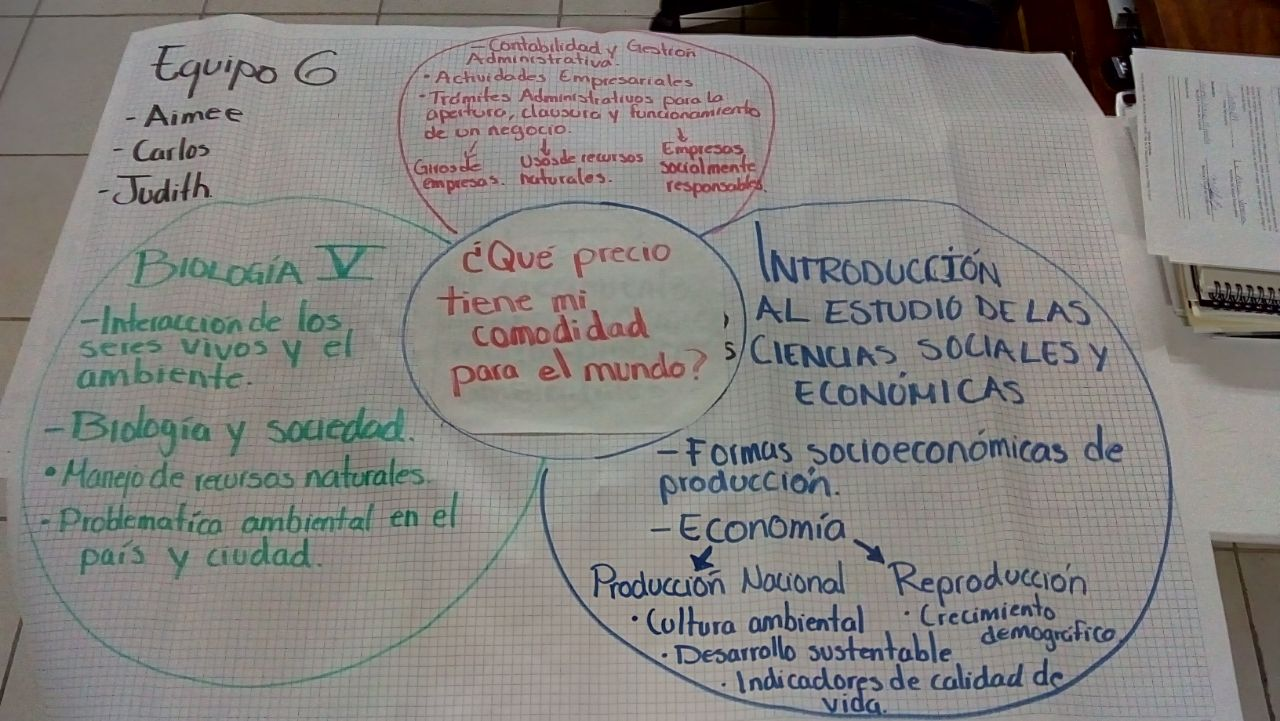 Equipo 6
- Aimee
- Carlos
- Judith
- Contabilidad y Gestión
Administrativa.
• Actividades Empresariales
- Trámites Administrativos para la
apertura, clausura y funcionamiento
de un negocio.
Giros de
empresas.
Usos de recursos
naturales.
Empresas
socialmente
responsables.
¿Qué precio
tiene mi
comodidad
para el mundo?
BIOLOGÍA V
- Interacción de los
seres vivos y el
ambiente.
- Biología y sociedad.
• Manejo de recursos naturales.
- Problematica ambiental en el
país y ciudad.
INTRODUCCIÓN
AL ESTUDIO DE LAS
CIENCIAS SOCIALES Y
ECONÓMICAS
- Formas socioeconómicas de
producción.
- Economía
Producción Nacional
• Cultura ambiental
• Desarrollo sustentable
• Indicadores de calidad de
vida.
Reproducción
• Crecimiento
demográfico